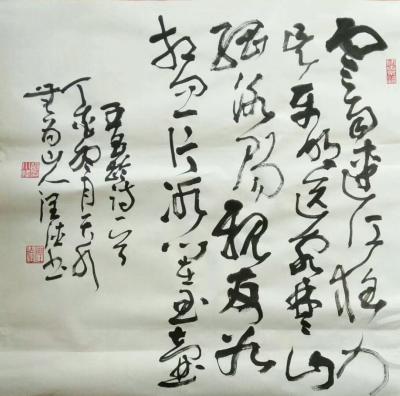 寒雨連江夜入
吴平明送客楚山
孤洛阳親友如
相问一片冰心在玉壶
王昌龄诗一首
丁酉 月天水
無为山人